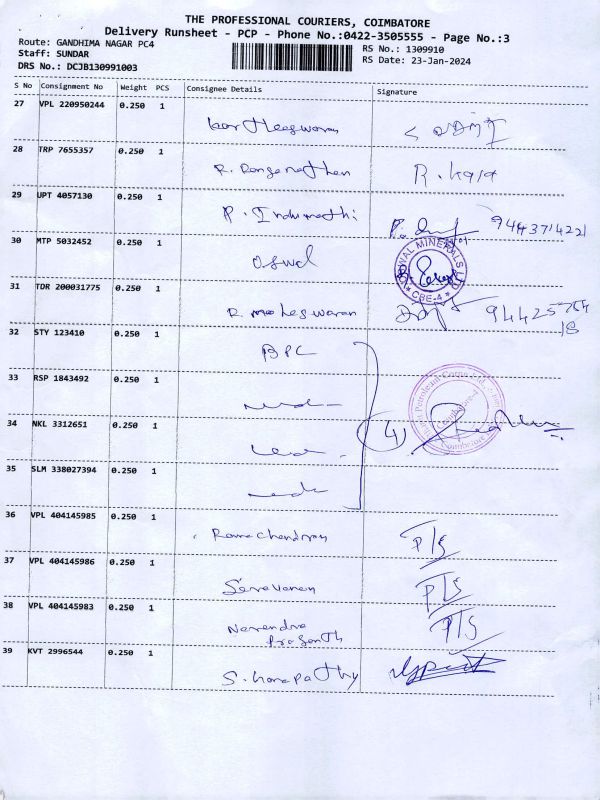 THE PROFESSIONAL COURIERS, COIMBATORE
Delivery Runsheet - PCP - Phone No.:0422-3505555 - Page No.:3
Route: GANDHIMA NAGAR PC4
RS No.: 1309910
Staff: SUNDAR
RS Date: 23-Jan-2024
DRS No.: DCJB130991003
S No Consignment No Weight PCS Consignee Details Signature
27 VPL 220950244 0.250 1
28 TRP 7655357 0.250 1 R. Ranganathan R. Kala
29 UPT 4057130 0.250 1 P. Indumathi 9443714221
30 MTP 5032452 0.250 1 Oswal
MINERALS LTD
CBE-4
31 TDR 200031775 0.250 1 R. Maheswaran
32 STY 123410 0.250 1 BPC
33 RSP 1843492 0.250 1
34 NKL 3312651 0.250 1 (4)
Petroleum Corpn. Ltd.
Coimbatore
35 SLM 338027394 0.250 1
36 VPL 404145985 0.250 1 Ramachandran P/S
37 VPL 404145986 0.250 1 Saravanan P/S
38 VPL 404145983 0.250 1 Narendra P/S
Prasanth
39 KVT 2996544 0.250 1